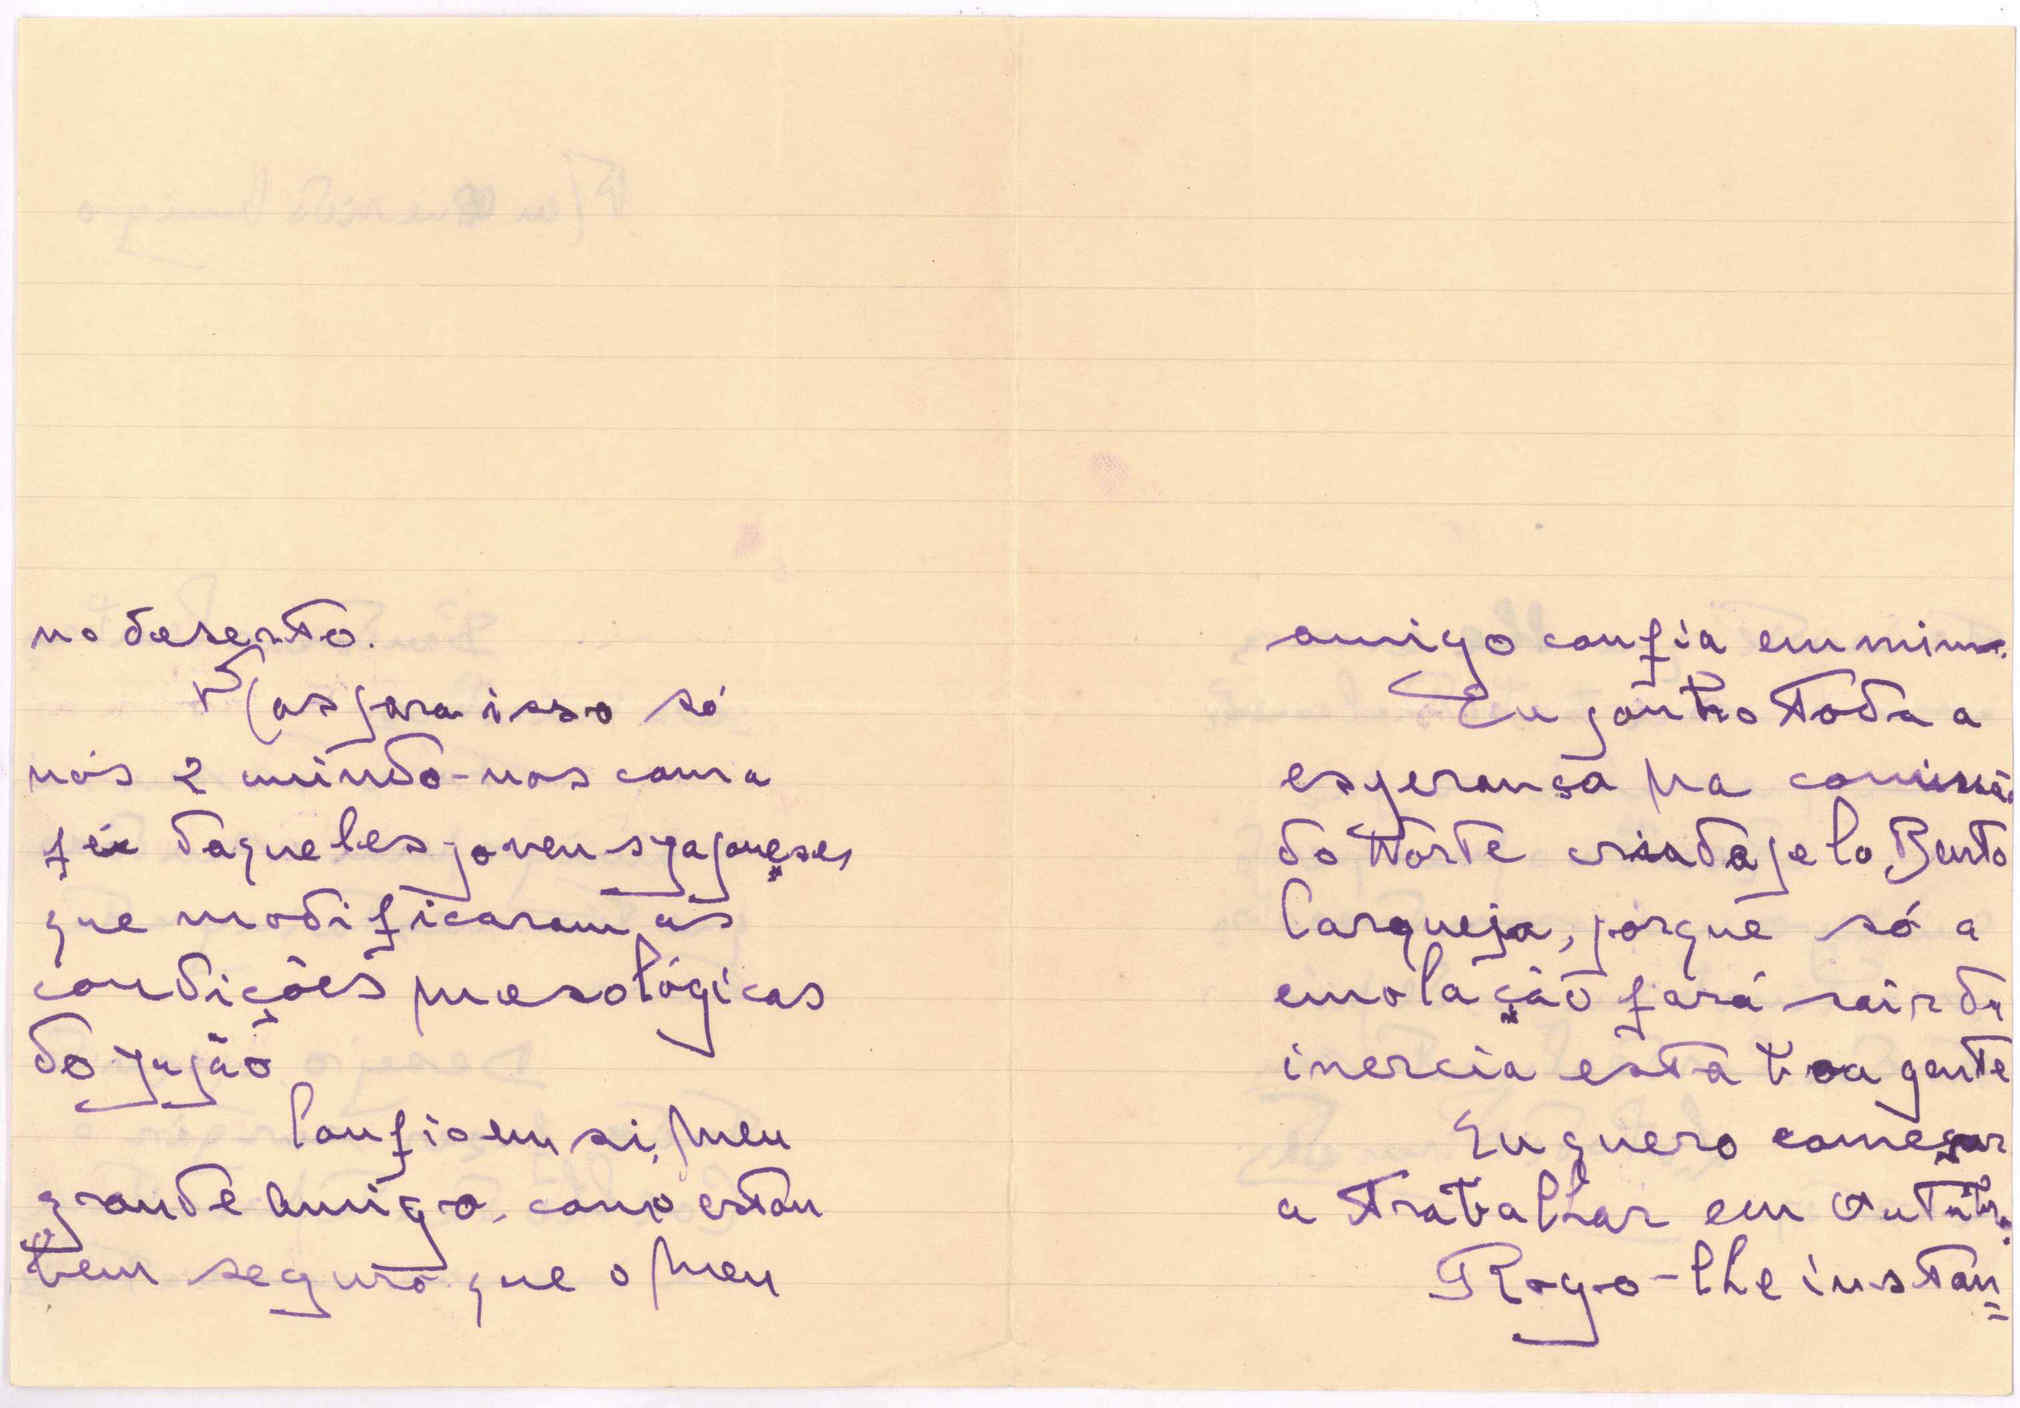 no deserto.
Mas para isso só
nós 2 unindo-nos com a
fé daqueles jovens japoneses
que modificaram as
condições mesológicas
do japão
Confio em si, meu
grande amigo, como estou
bem seguro que o meu
amigo confia em mim.
Eu ponho toda a
esperança na comissão
do Norte criada pelo Bento
Carqueja, porque só a
emolação fará sair da
inercia esta boa gente
Eu quero começar
a trabalhar em Outubro.
Rogo-lhe instan=